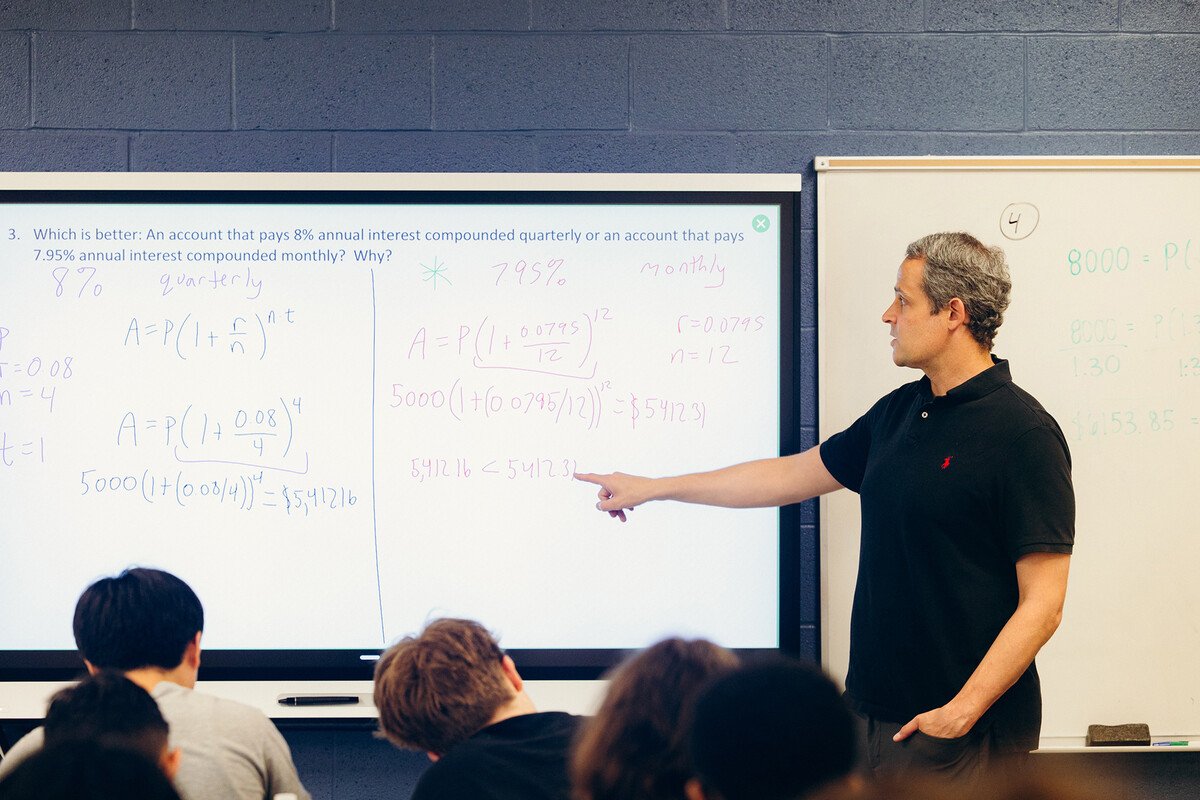 3. Which is better: An account that pays 8% annual interest compounded quarterly or an account that pays
7.95% annual interest compounded monthly? Why?
8% quarterly
A=P(1+r/n)^n·t
=0.08
n=4
t=1
A=P(1+0.08/4)^4
5000(1+(0.08/4))^4=$5,412.16
* 7.95% monthly
A=P(1+0.0795/12)^12
r=0.0795
n=12
5000(1+(0.0795/12))^12=$5412.31
5,412.16<5412.31
4
8000=P(
8000=P(1.3
1.30
$6153.85=